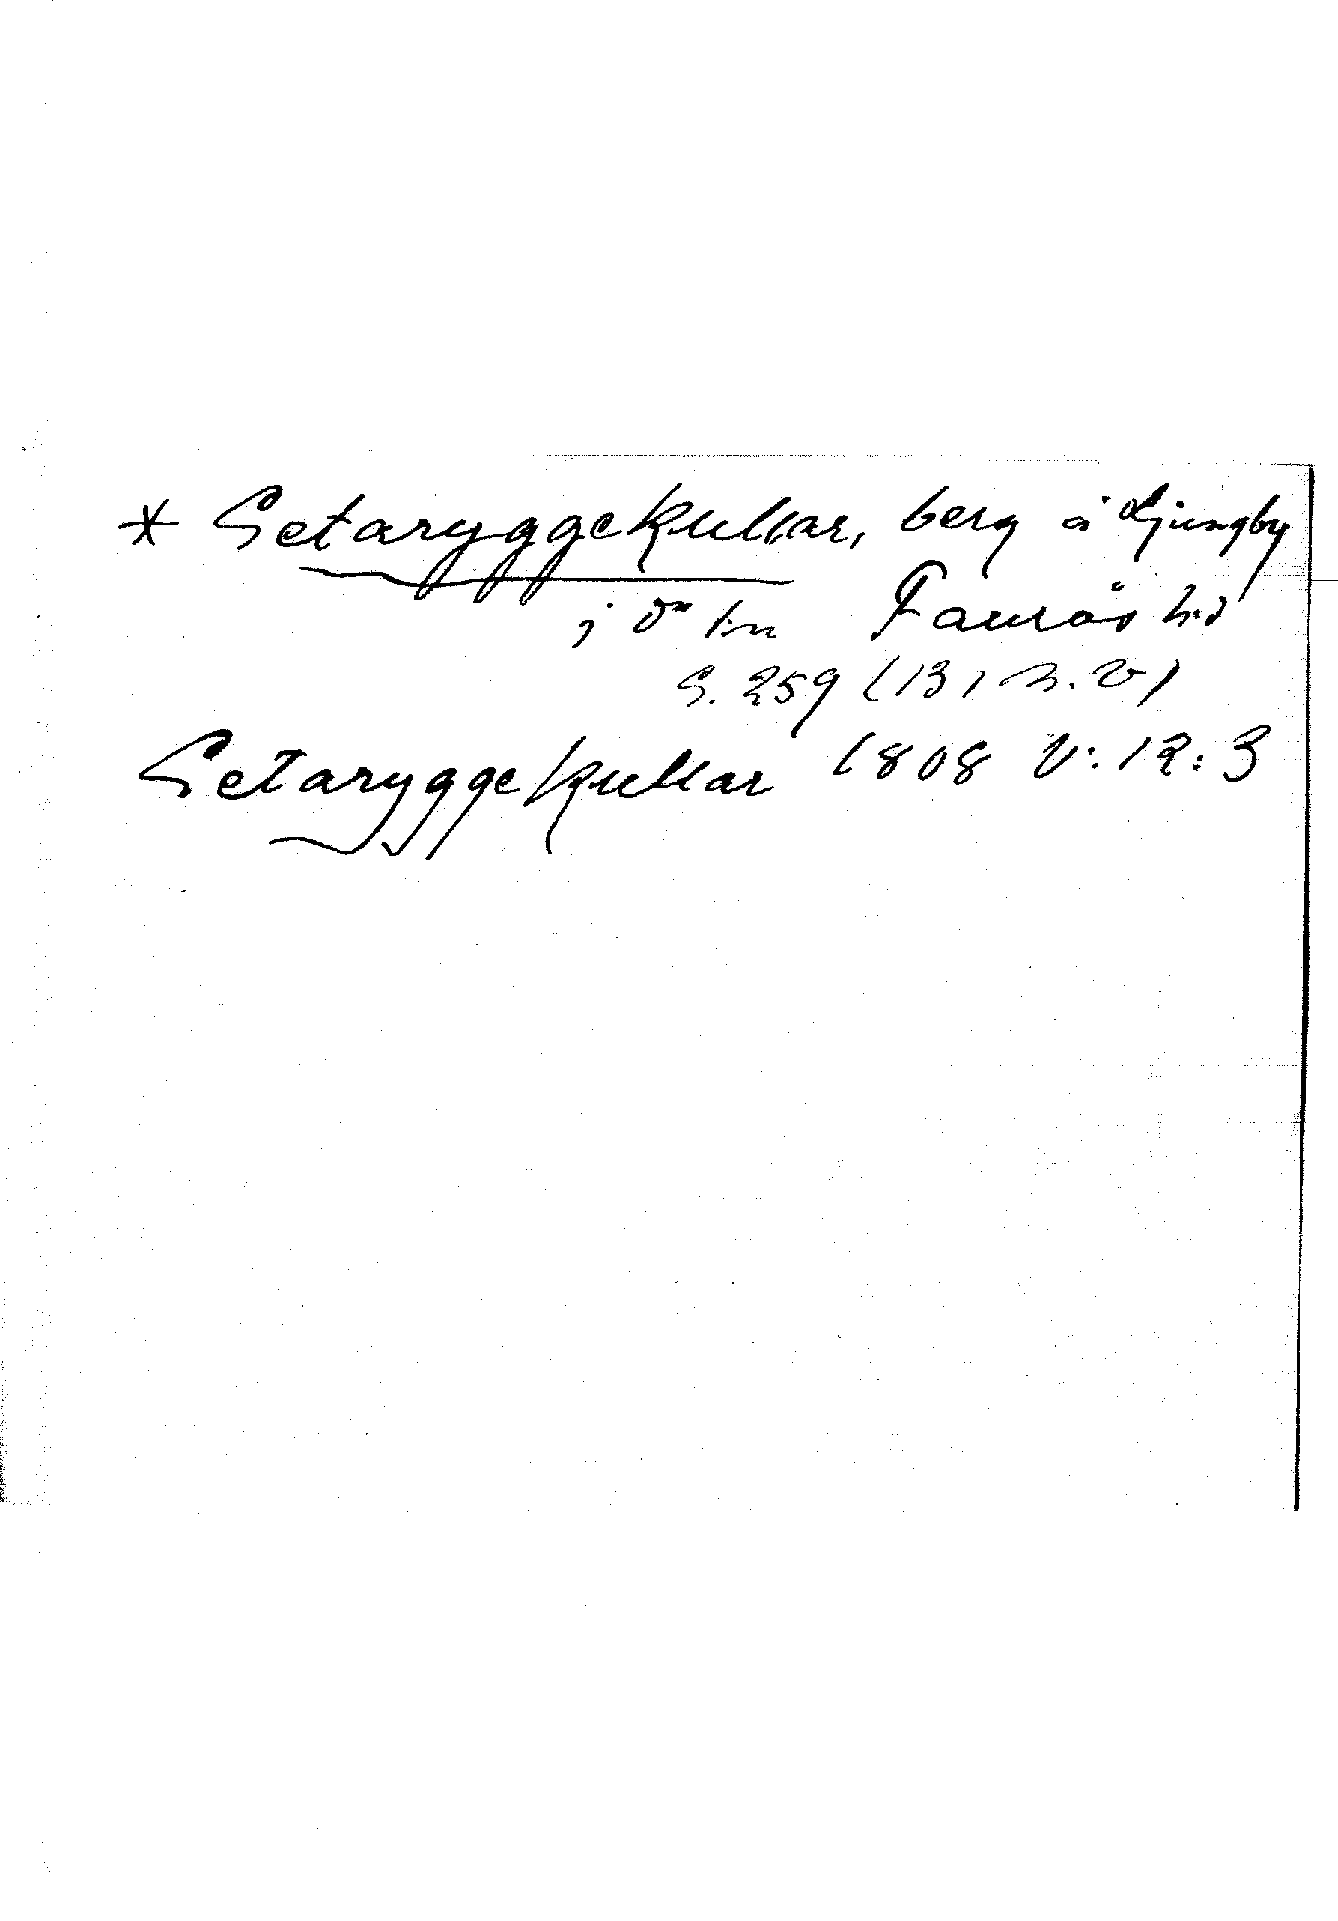 * Setaryggekullar, berg å Ljungby
i dª sn Faurås hd
S. 259 (13,
Setaryggekullar 1808 V:12:3